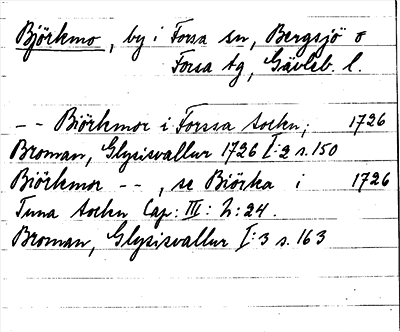 Björkmo, by i Forsa sn, Bergsjö o
Forsa tg, Gävleb. l.
-- Biörkmor i Forssa Sockn; 1726
Broman, Glysisvallur 1726 I:2 s. 150
Biörkmor --, se Biörka i 1726
Tuna Sockn Cap: III: h: 24.
Broman, Glysisvallur I:3 s. 163